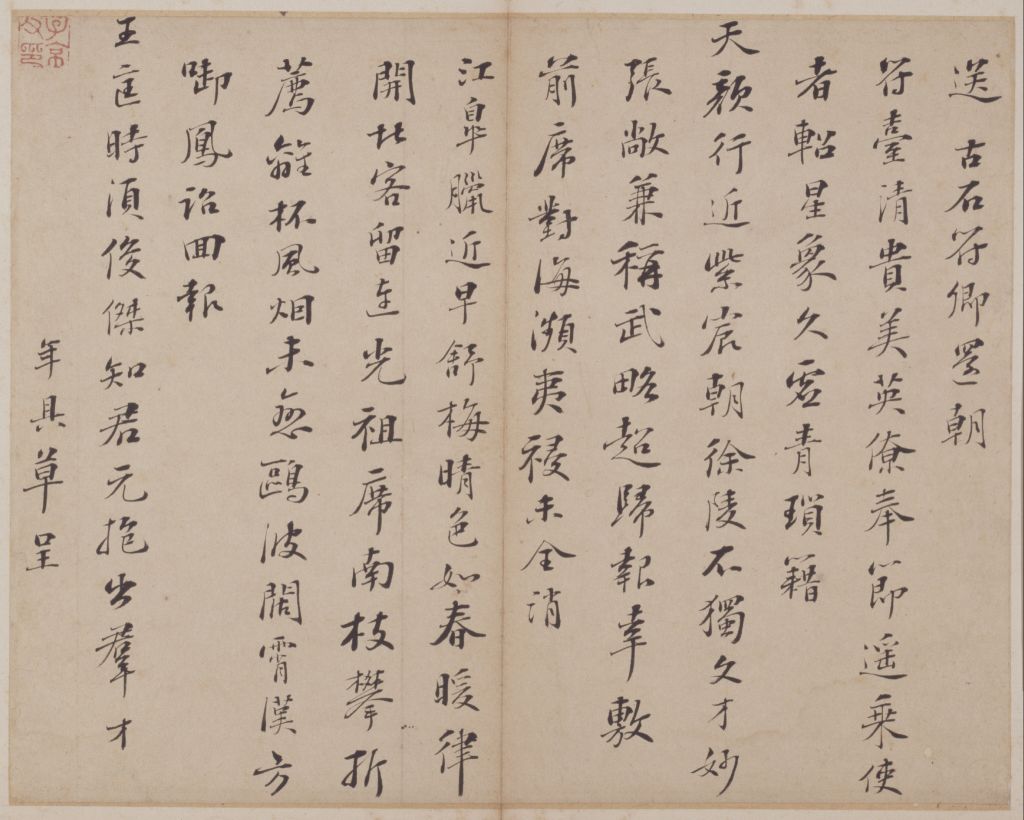 送 古石符卿還朝
符臺清貴美英僚奉節遥乗使
者軺星象久虚青瑣籍
天顏行近紫宸朝徐陵不獨文才妙
張敞兼稱武略超歸報幸敷
前席對海瀕夷祲未全消
江臯臘近早舒梅晴色如春暖律
開北客留連光祖席南枝攀折
薦離杯風烟未愈鷗波闊霄漢方
啣鳳詔回報
王匡時須俊傑知君元抱出羣才
年具草呈